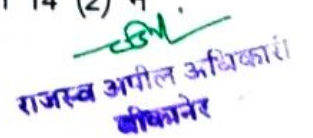 14 (2) म
राजस्व अपील अधिकारी
बीकानेर